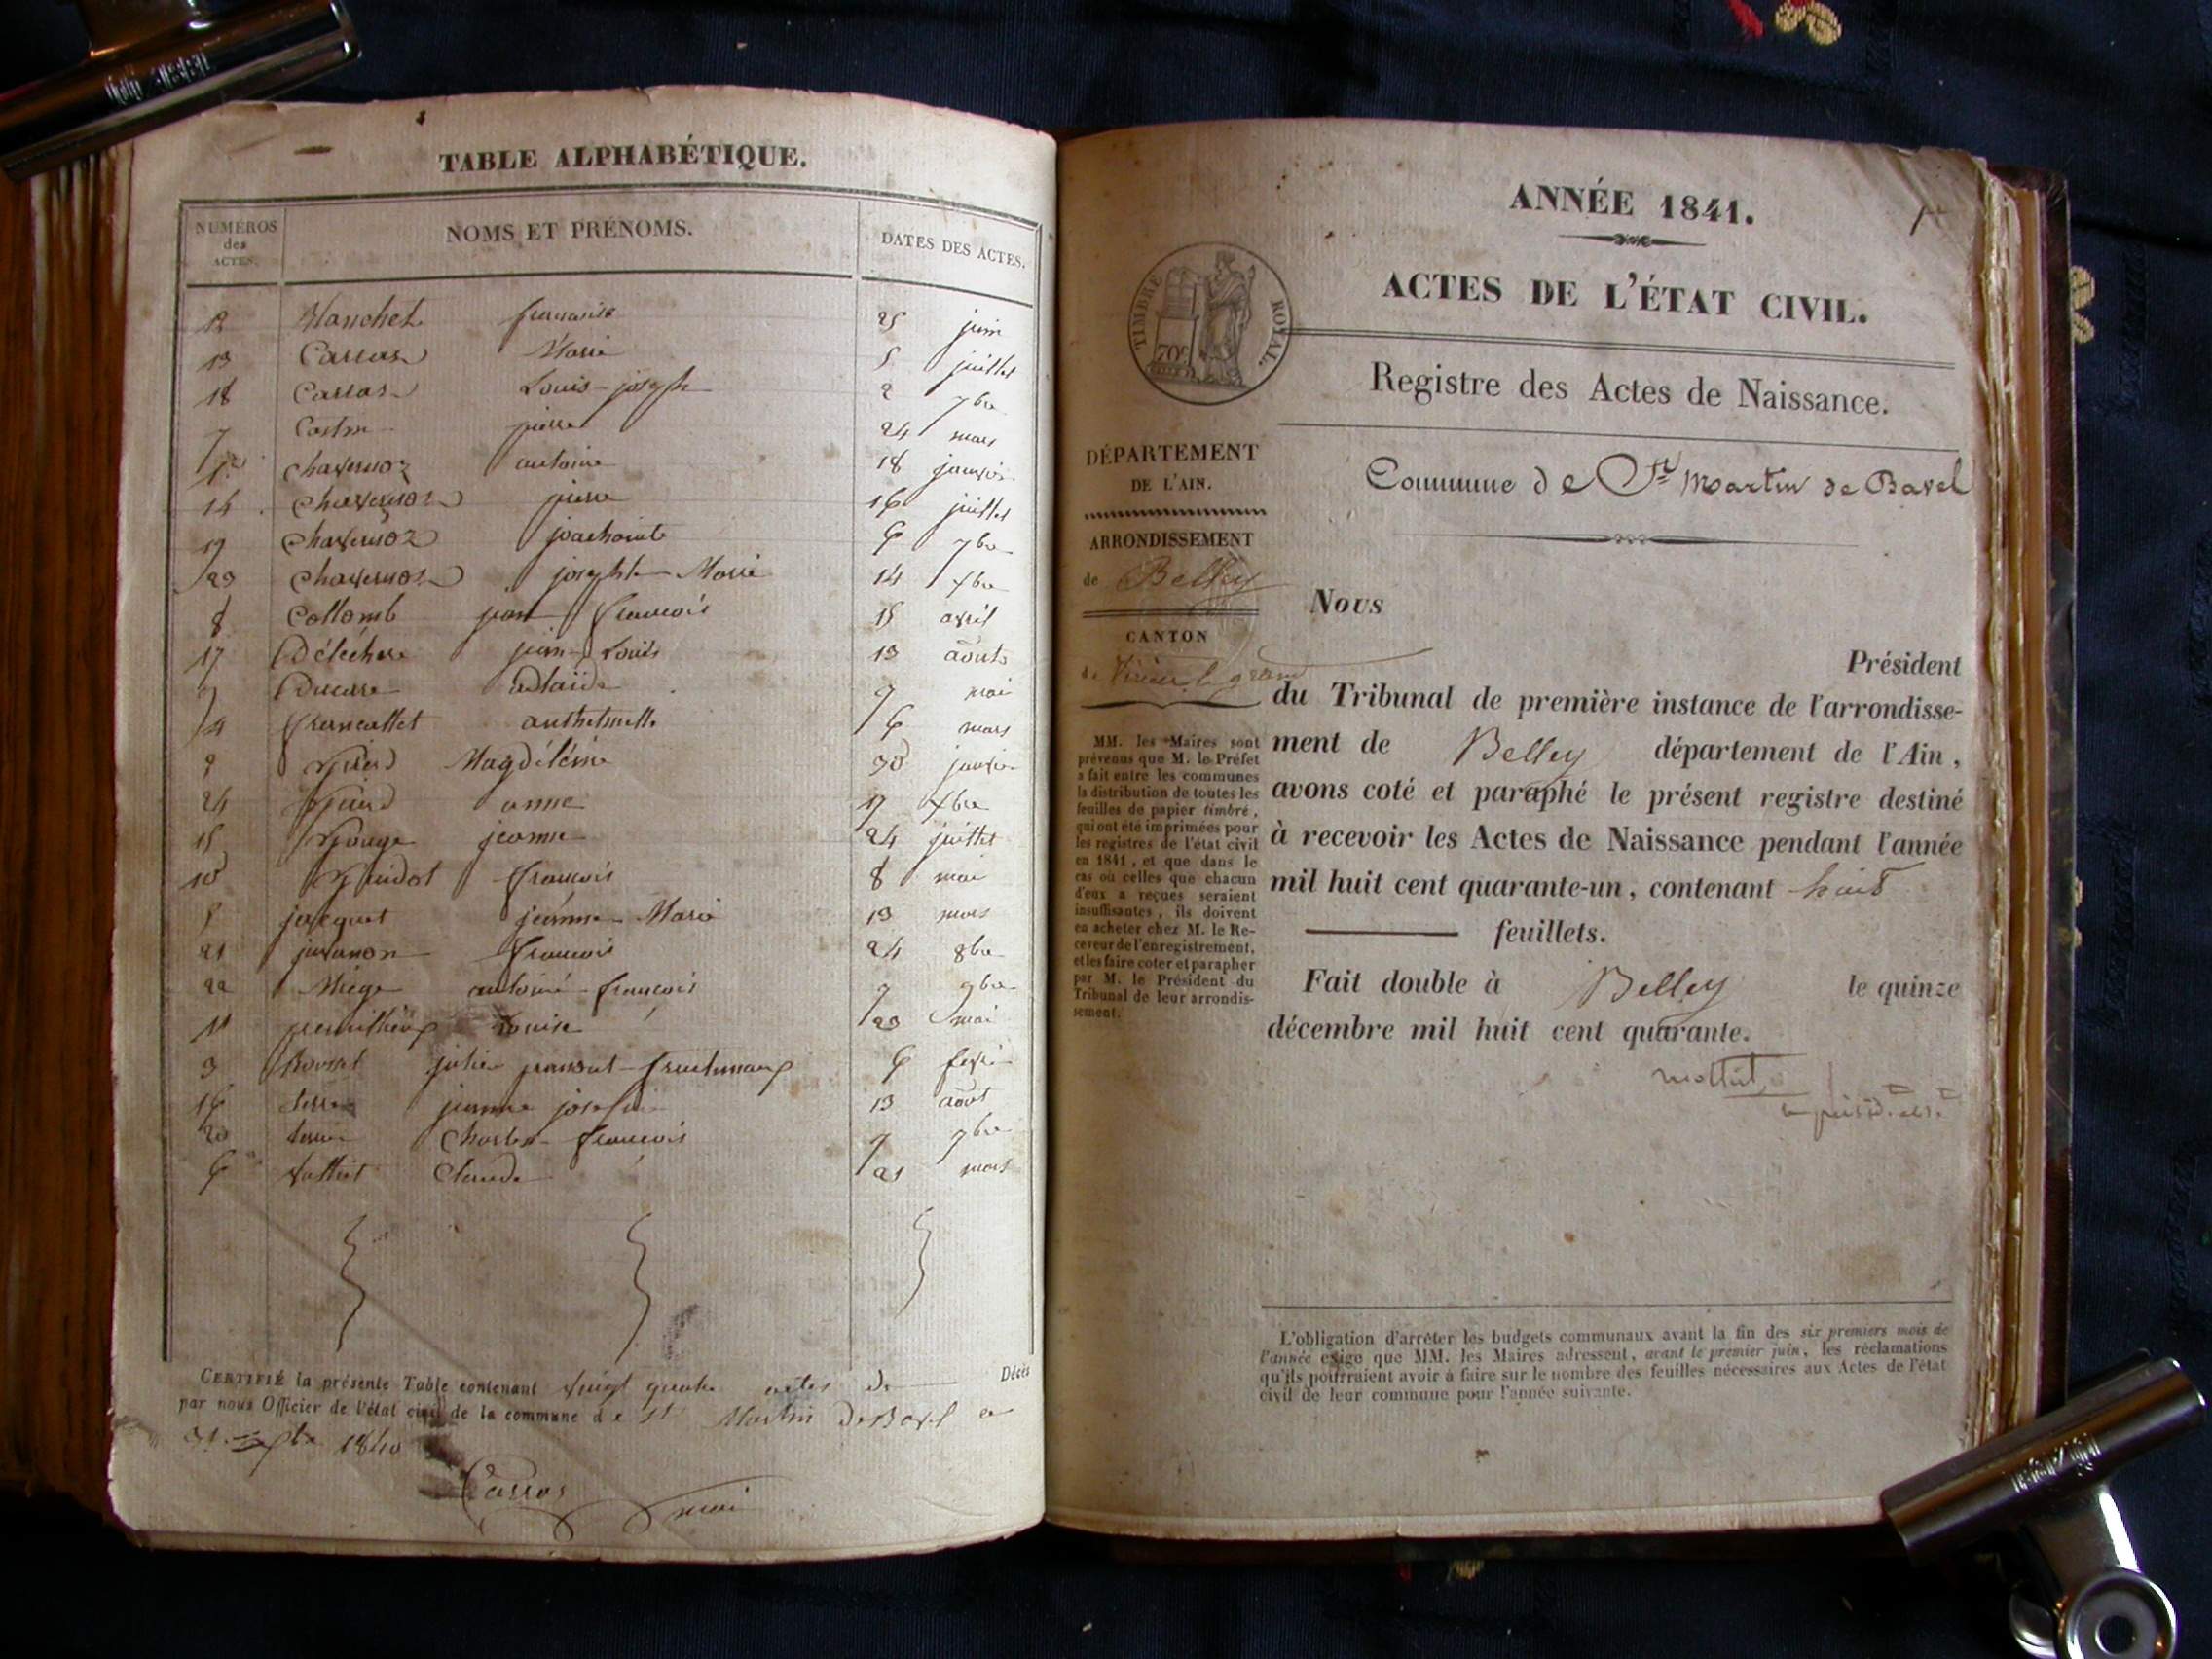 TABLE ALPHABÉTIQUE.
NUMÉROS des ACTES. NOMS ET PRÉNOMS. DATES DES ACTES.
12 Blanchet françoise 25 juin
13 Carras Marie 5 juillet
18 Carras Louis-joseph 2 7bre
7 pierre 24 mars
1er chavernoz antoine 18 janvier
14 chavernoz pierre 16 juillet
19 chavernoz 6 7bre
23 chavernoz joseph-Marie 14 xbre
8 Collomb jean françois 15 avril
17 jean-Louis 13 août
9 adlaïde 7 mai
4 francallet anthelmette 6 mars
2 Magdéléine 30 janvier
24 anne 17 xbre
15 jeanne 24 juillet
10 françois 8 mai
5 jacquet jeanne-Marie 13 mars
21 juvanon françois 24 8bre
22 Miège antoine-françois 7 9bre
11 Louise 23 mai
3 6
16 jeanne 13 août
20 Charles-françois 7 7bre
6 Claude 21 mars
CERTIFIÉ la présente Table contenant vingt quatre actes de Décès
par nous Officier de l'état civil de la commune de St Martin de Bavel ce
31 xbre 1840
Carras maire
ANNÉE 1841.
1er
ACTES DE L'ÉTAT CIVIL.
TIMBRE ROYAL.
70c
Registre des Actes de Naissance.
Commune de St Martin de Bavel
DÉPARTEMENT
DE L'AIN.
ARRONDISSEMENT
de Belley
CANTON
de Virieu le grand
MM. les Maires sont
prévenus que M. le Préfet
a fait entre les communes
la distribution de toutes les
feuilles de papier timbré,
qui ont été imprimées pour
les registres de l'état civil
en 1841, et que dans le
cas où celles que chacun
d'eux a reçues seraient
insuffisantes, ils doivent
en acheter chez M. le Re-
ceveur de l'enregistrement,
et les faire coter et parapher
par M. le Président du
Tribunal de leur arrondis-
sement.
Nous
Président
du Tribunal de première instance de l'arrondisse-
ment de Belley département de l'Ain,
avons coté et paraphé le présent registre destiné
à recevoir les Actes de Naissance pendant l'année
mil huit cent quarante-un, contenant huit
feuillets.
Fait double à Belley le quinze
décembre mil huit cent quarante.
L'obligation d'arrêter les budgets communaux avant la fin des six premiers mois de
l'année exige que MM. les Maires adressent, avant le premier juin, les réclamations
qu'ils pourraient avoir à faire sur le nombre des feuilles nécessaires aux Actes de l'état
civil de leur commune pour l'année suivante.